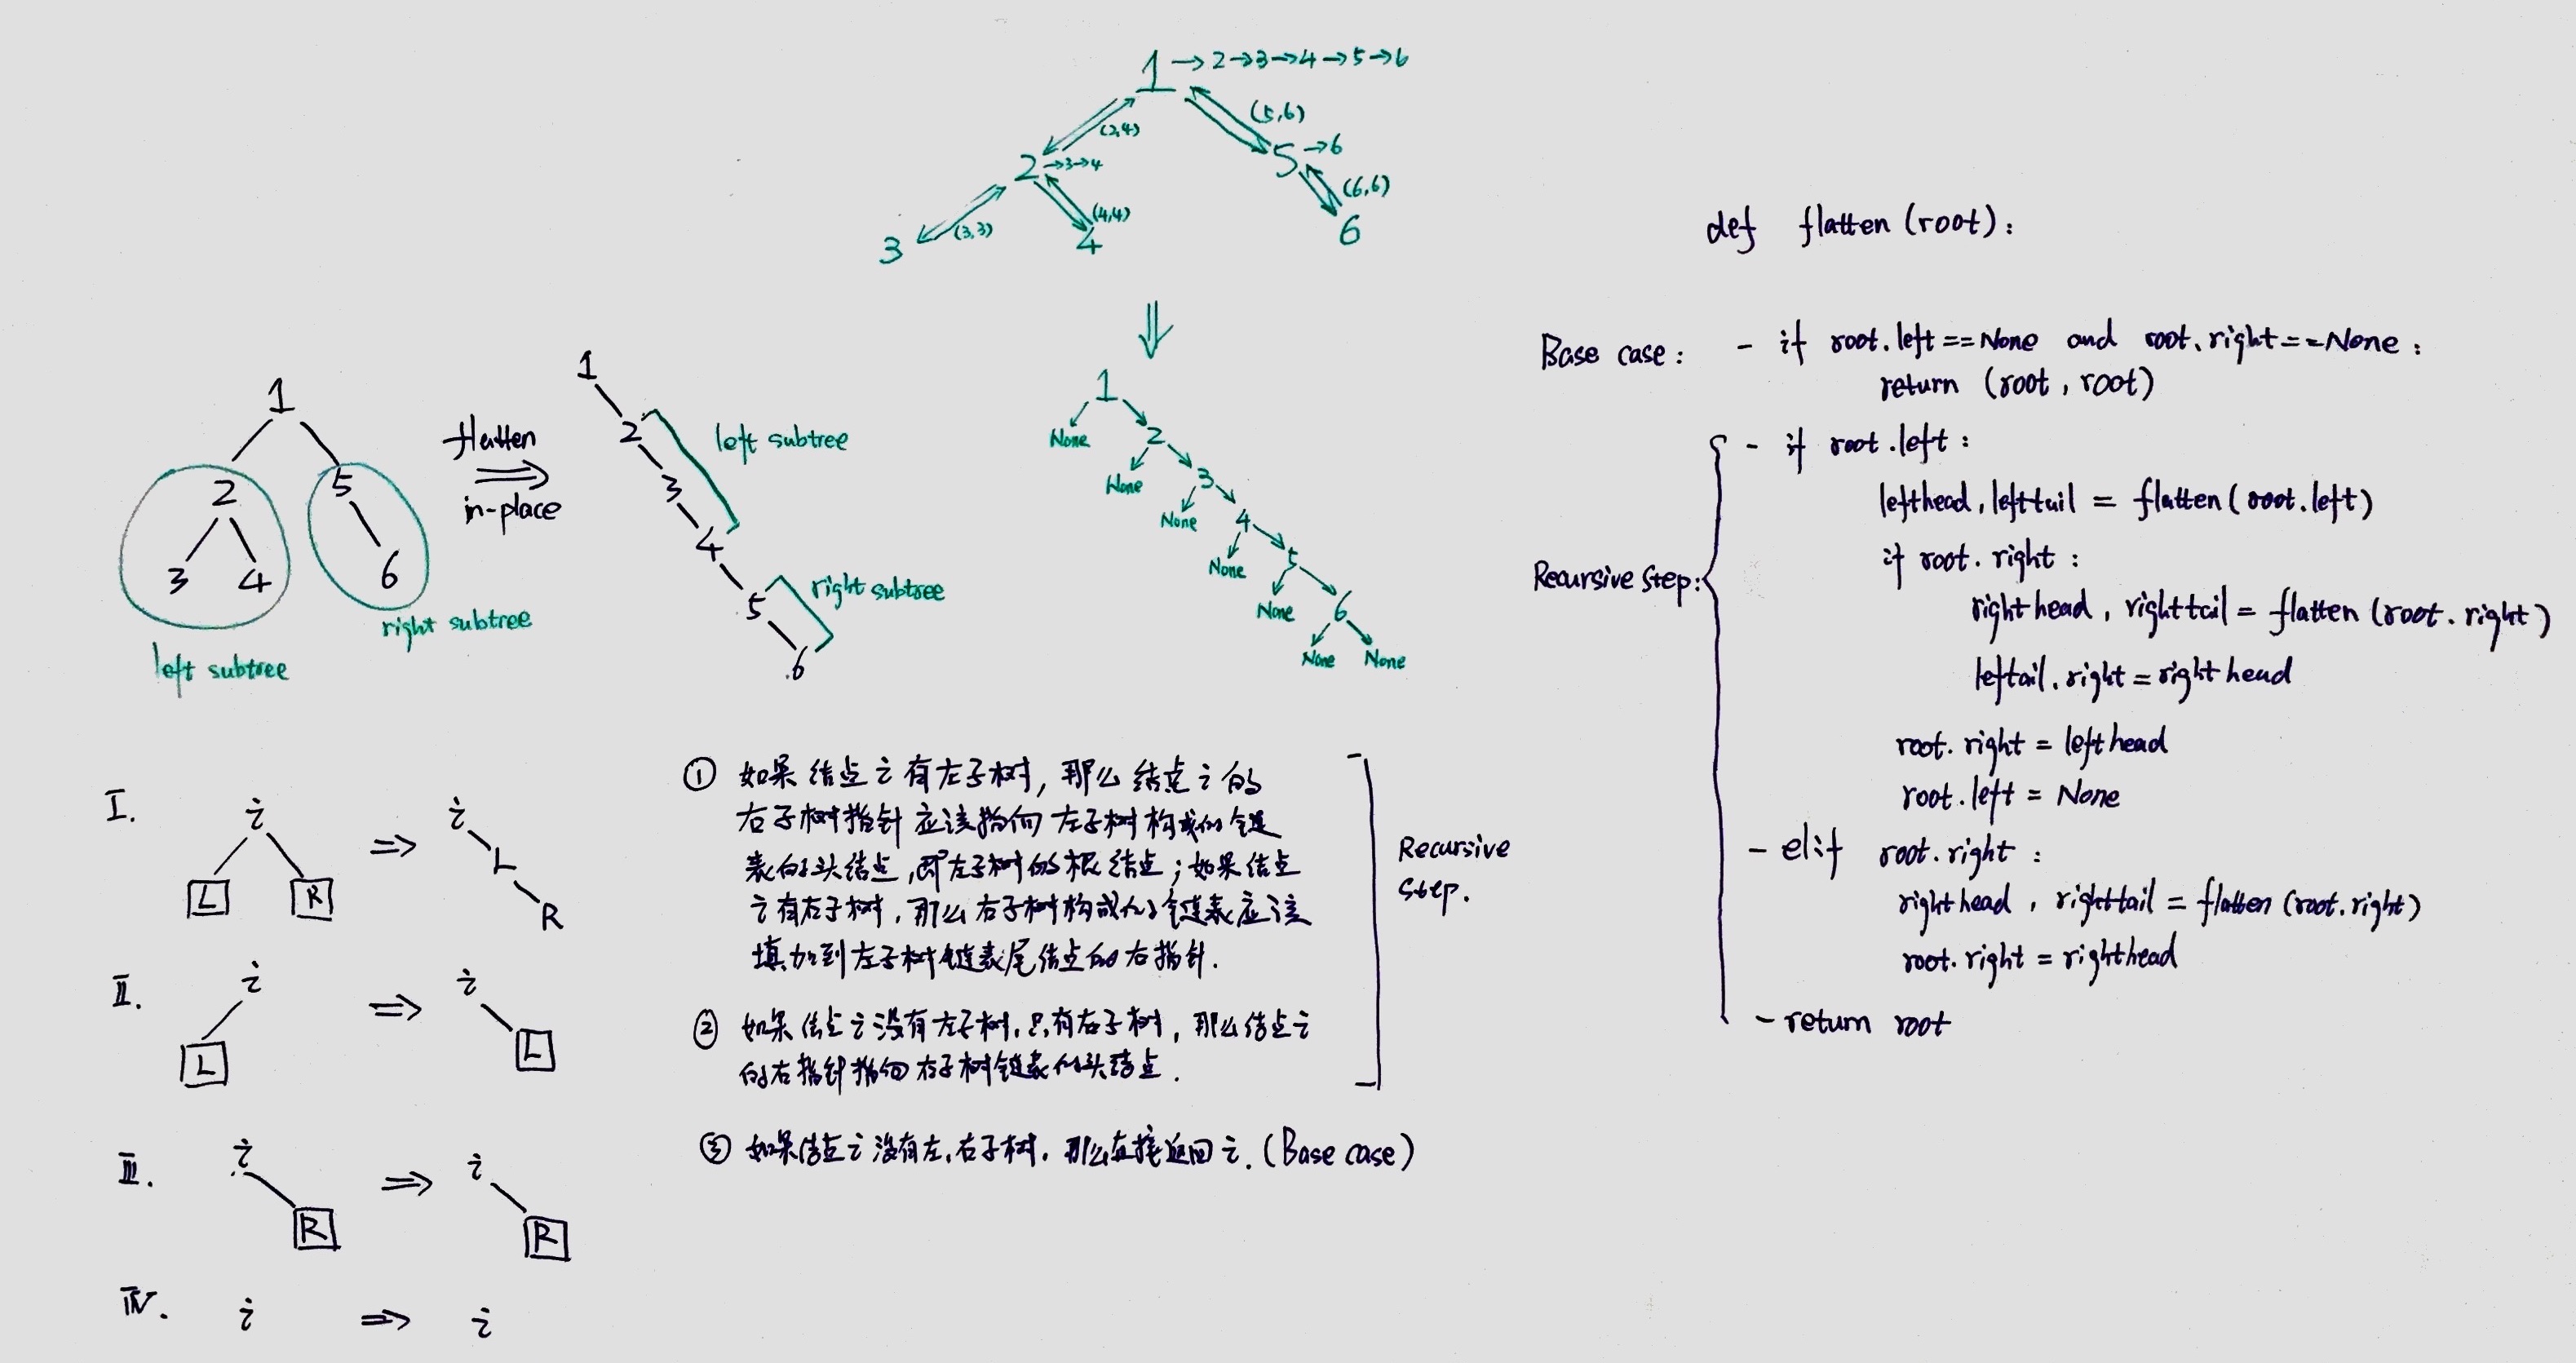 1 →2→3→4→5→6
(2,4)
(5,6)
2 →3→4
5 →6
(3,3)
(4,4)
(6,6)
3
4
6
⇓
1
None
2
None
3
None
4
None
5
None
6
None
None
1
2
5
3
4
6
left subtree
right subtree
flatten
⇒
in-place
1
2
3
4
left subtree
5
6
right subtree
I.
i
L
R
⇒
i
L
R
II.
i
L
⇒
i
L
III.
i
R
⇒
i
R
IV.
i
⇒
i
① 如果结点i有左子树, 那么结点i的
右子树指针应该指向左子树构成的链
表的头结点,即左子树的根结点;如果结点
i有右子树, 那么右子树构成的链表应该
填加到左子树链表尾结点的右指针.
② 如果结点i没有左子树,只有右子树, 那么结点i
的右指针指向右子树链表的头结点.
Recursive
Step.
③ 如果结点i没有左,右子树, 那么直接返回i. (Base case)
def flatten (root):
Base case: - if root.left==None and root.right==None:
return (root, root)
Recursive Step:
- if root.left:
lefthead, lefttail = flatten(root.left)
if root.right:
righthead, righttail = flatten (root.right)
leftail.right = righthead
root.right = lefthead
root.left = None
- elif root.right:
righthead, righttail = flatten (root.right)
root.right = righthead
- return root